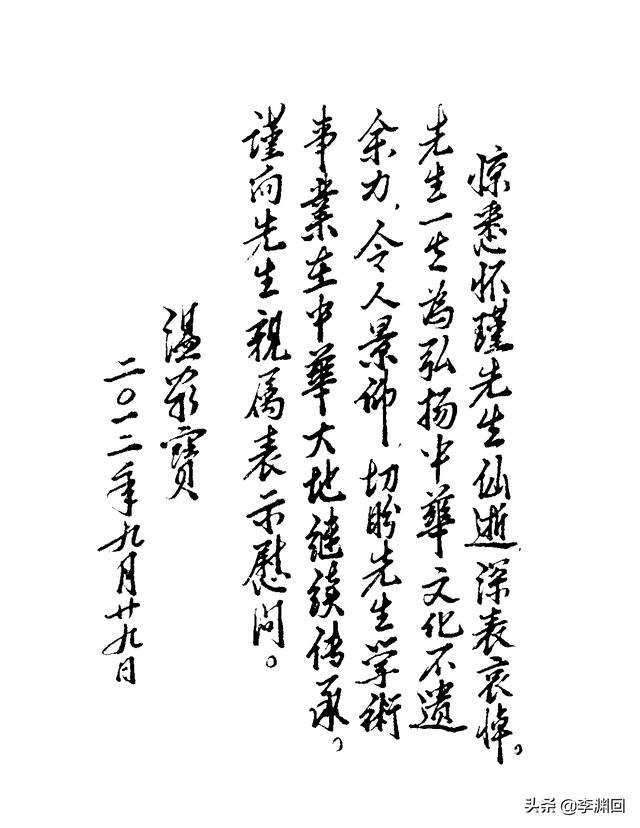 惊悉怀瑾先生仙逝,深表哀悼。
先生一生为弘扬中華文化不遗
余力,令人景仰,切盼先生学術
事業在中華大地继续传承。
谨向先生親属表示慰问。
温家寶
二〇一二年九月廿九日
头条 @李渊回